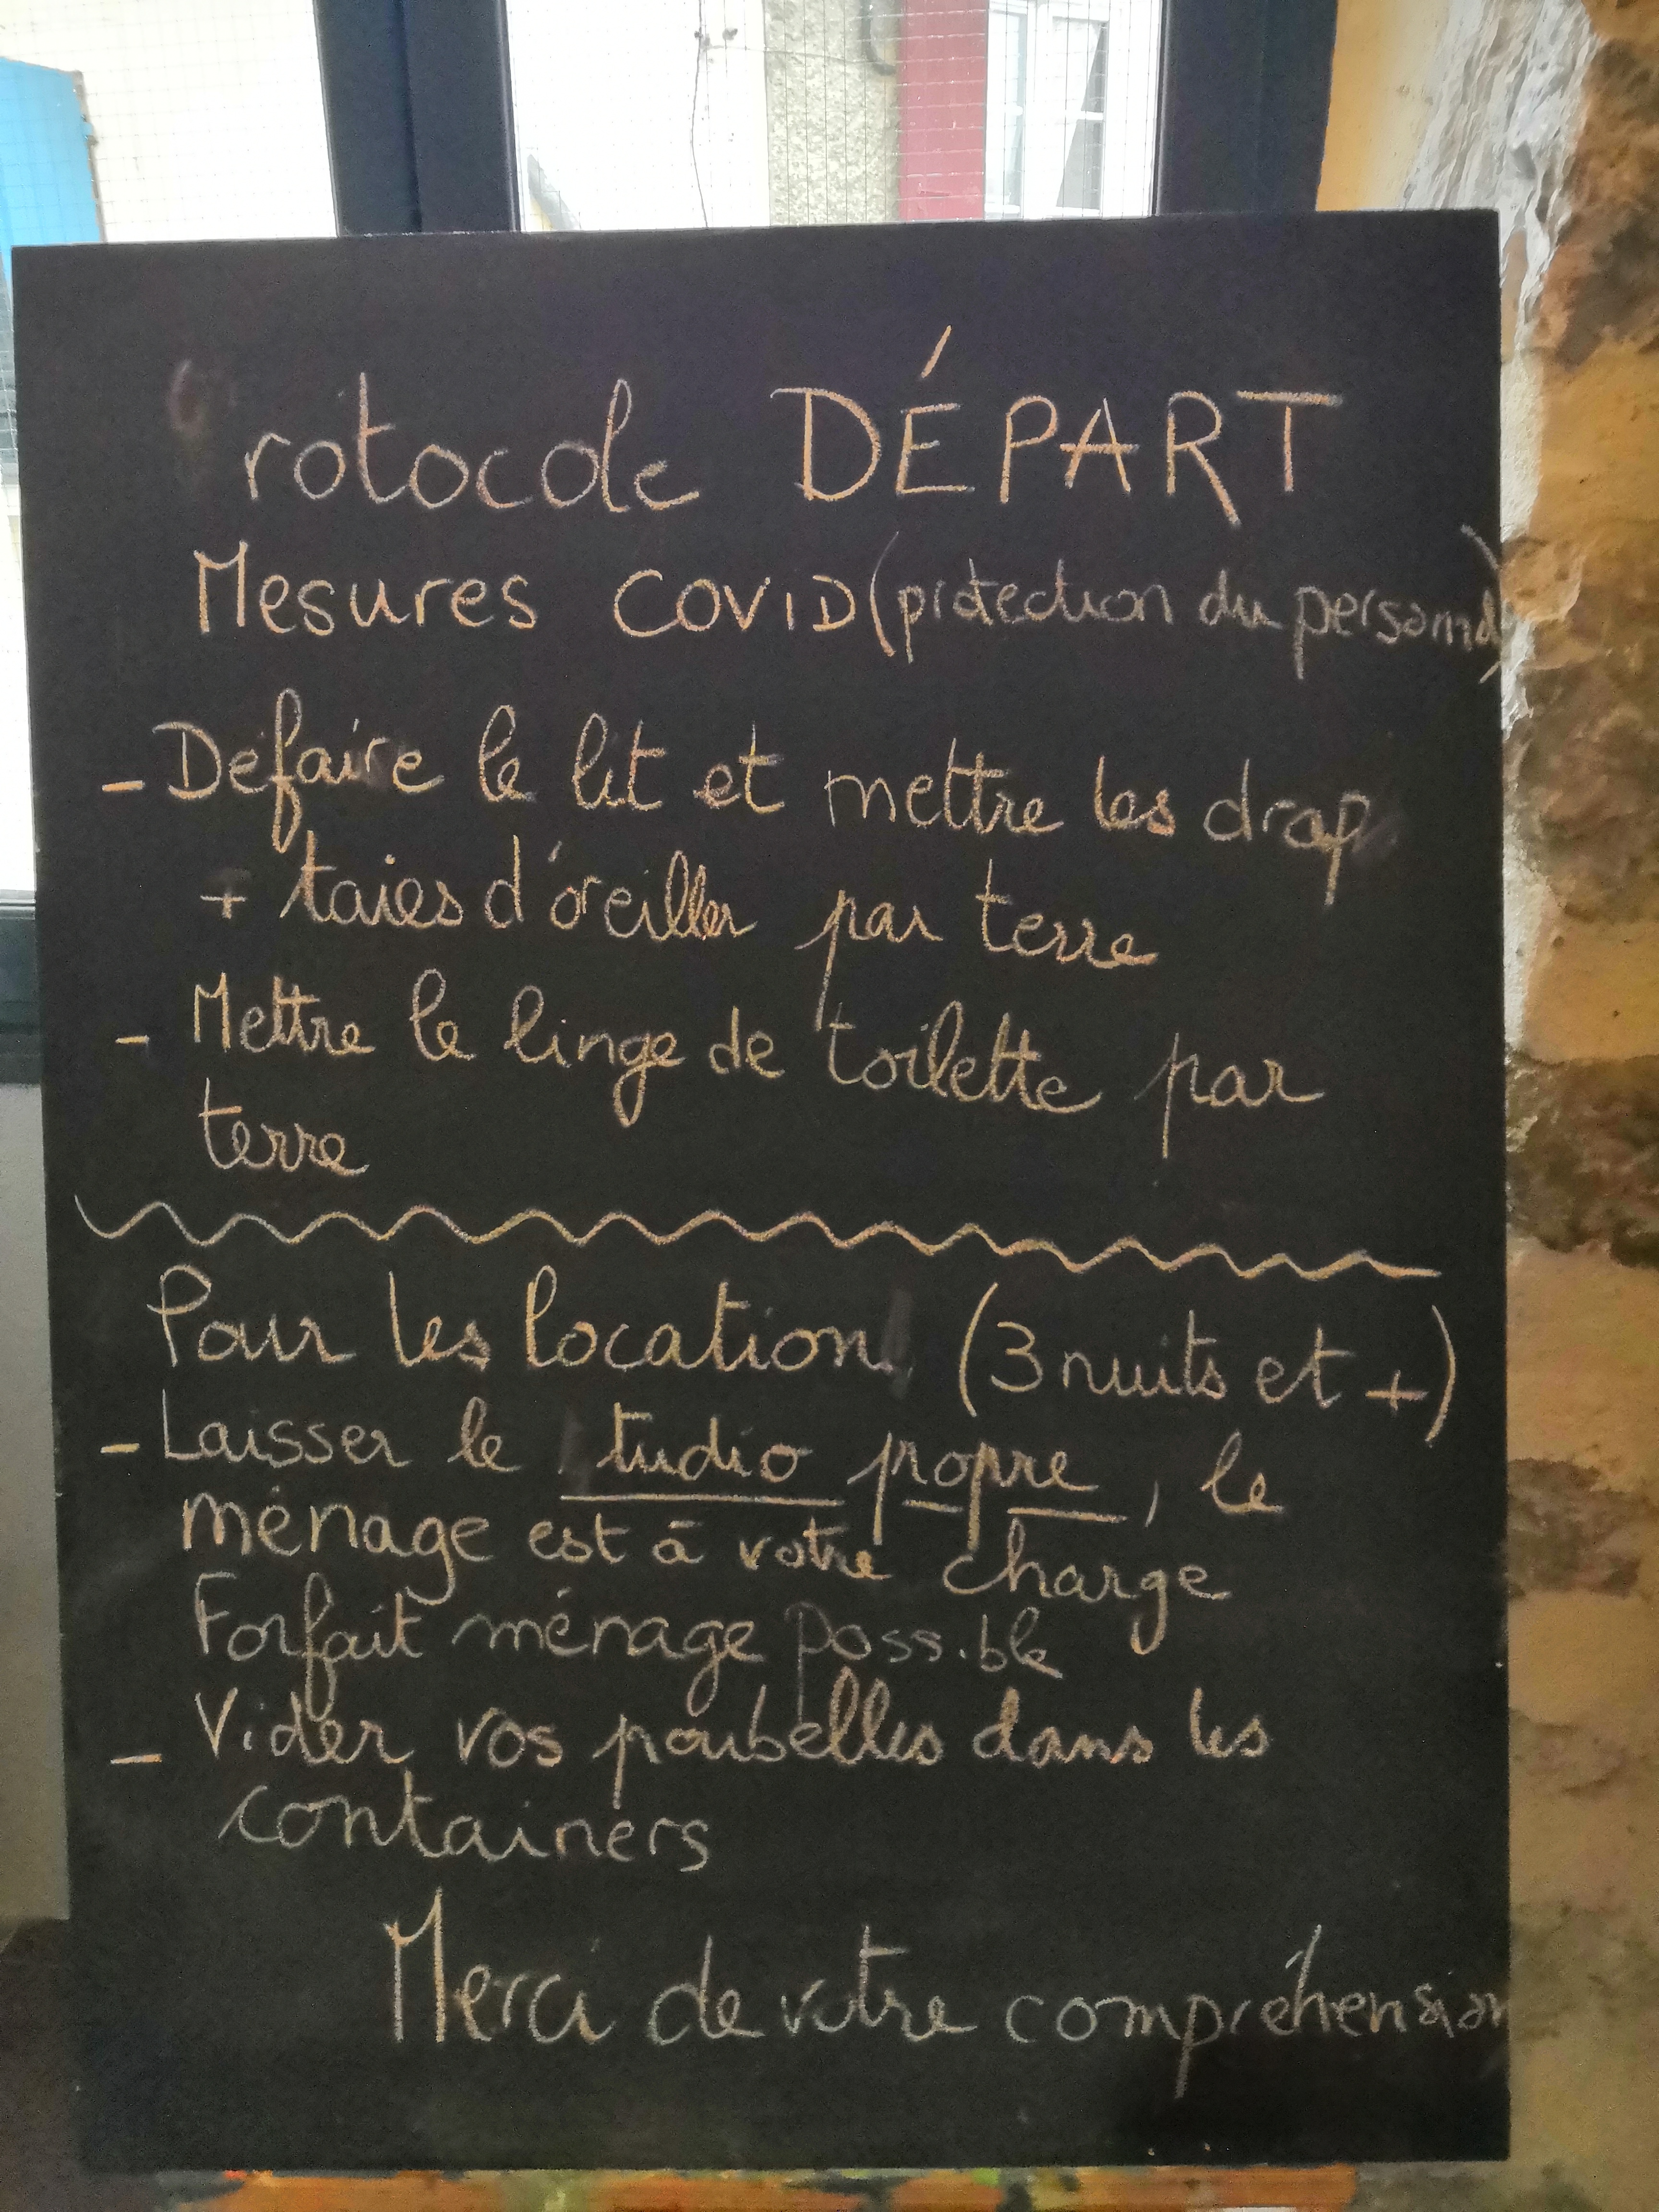 rotocole DÉPART
Mesures COVID (protection du personnel)
- Défaire le lit et mettre les drap
+ taies d'oreiller par terre
- Mettre le linge de toilette par
terre
Pour les location (3 nuits et +)
- Laisser le tudio propre, le
ménage est à votre charge
Forfait ménage possible
- Vider vos poubelles dans les
containers
Merci de votre compréhension